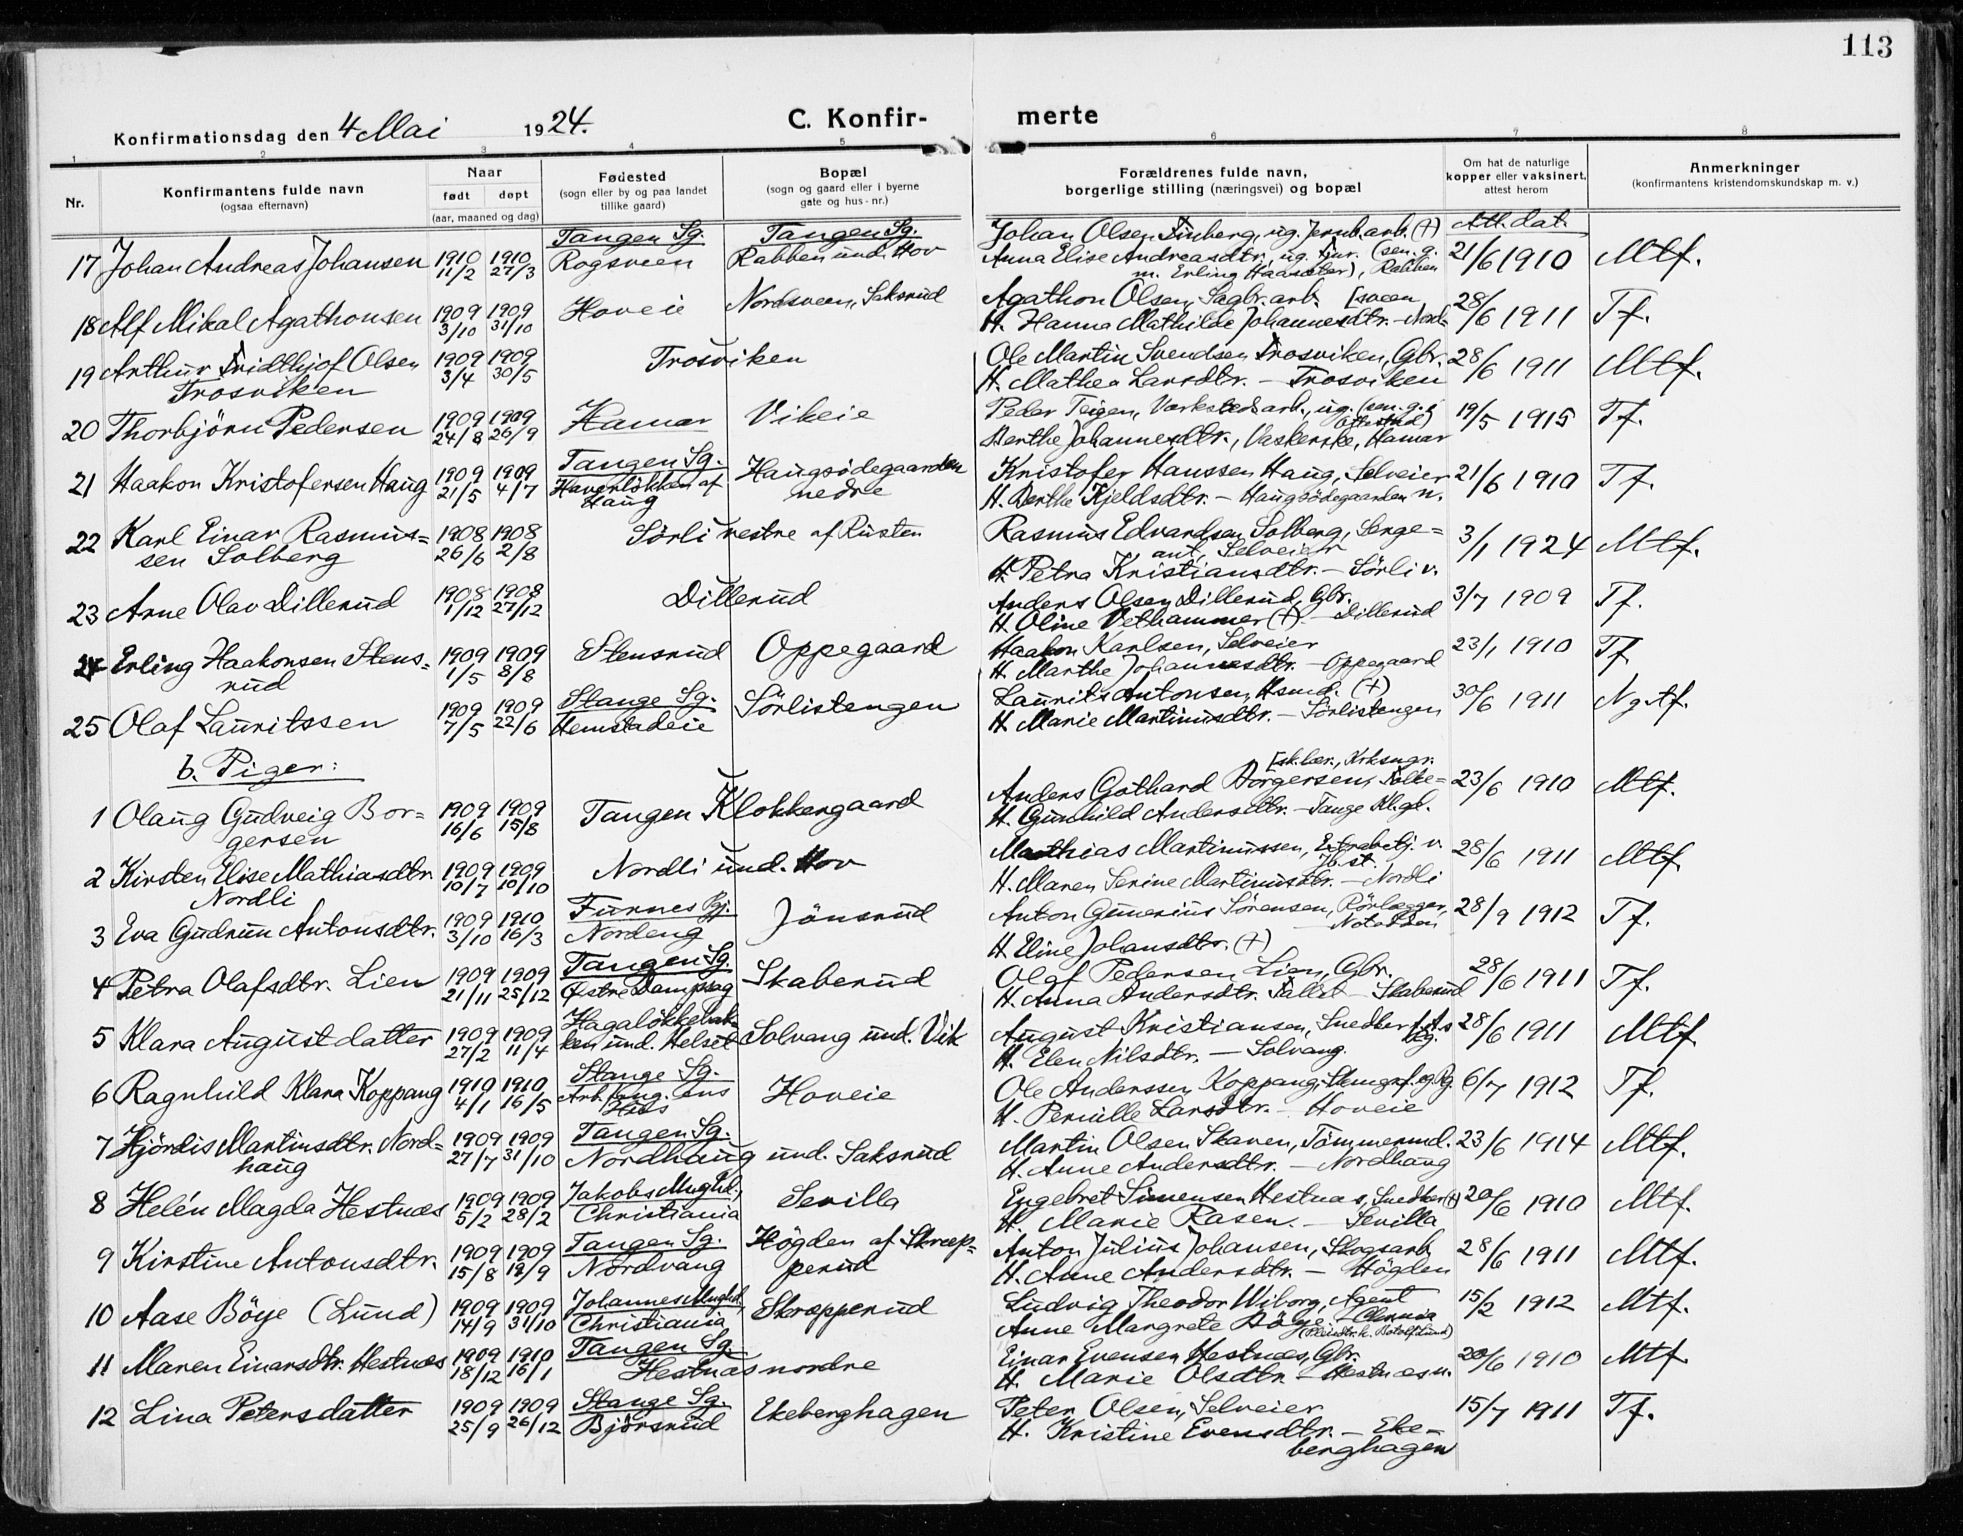 113
Konfirmationsdag den 4 Mai 1924.
C. Konfirmerte
1 2 3 4 5 6 7 8
Nr.
Konfirmantens fulde navn
(ogsaa efternavn)
Naar
født døpt
(aar, maaned og dag)
Fødested
(sogn eller by og paa landet
tillike gaard)
Bopæl
(sogn og gaard eller i byerne
gate og hus-nr.)
Forældrenes fulde navn,
borgerlige stilling (næringsvei) og bopæl
Om hat de naturlige
kopper eller vaksinert,
attest herom
Anmerkninger
(konfirmantens kristendomskundskap m. v.)
Tangen Sg. Tangen Sg. Johan Olsen Finberg, ug. Jernb.arb. (+) Att. dat.
17 Johan Andreas Johansen 1910 11/2 1910 27/3 Rogsveen Rabben und. Hov Anna Elise Andreasdtr., ug. (sen. g. 21/6 1910 Mtf.
m. Erling Haasæter), Rabben
18 Alf Mikal Agathonsen 1909 3/10 1909 31/10 Hoveie Nordsveen, Saksrud Agathon Olsen, Sagbr.arb. [sveen 28/6 1911 Tf.
H. Hanna Mathilde Johannesdtr. – Nord-
19 Arthur Fridthjof Olsen 1909 3/4 1909 30/5 Trosviken Ole Martin Svendsen Trosviken, Gbr. 28/6 1911 Mtf.
Trosviken H. Mathea Larsdtr. – Trosviken
20 Thorbjörn Pedersen 1909 24/8 1909 26/9 Hamar Vikeie Peder Teigen, Værkstedsarb., ug. (sen. g. i Ottestad) 19/5 1915 Tf.
Berthe Johannesdtr., Vaskerske, Hamar
21 Haakon Kristofersen Haug 1909 21/5 1909 4/7 Tangen Sg. Haverløkken af Haug Haugsödegaarden nedre Kristofer Hanssen Haug, Selveier 21/6 1910 Tf.
H. Berthe Kjeldsdtr. – Haugsödegaarden n.
22 Karl Einar Rasmus- 1908 26/6 1908 2/8 Sörli vestre af Rusten Rasmus Edvardsen Solberg, Serge- 3/1 1924 Mtf.
sen Solberg ant, Selveier
H. Petra Kristiansdtr. – Sörli v.
23 Arne Olav Dillerud 1908 1/12 1908 27/12 Dillerud Anders Olsen Dillerud, Gbr. 3/7 1909 Tf.
H. Oline Vethammer (+). – Dillerud
24 Erling Haakonsen Stens- 1909 1/5 1909 8/8 Stensrud Oppegaard Haakon Karlsen, Selveier 23/1 1910 Tf
rud H. Marthe Johannesdtr. – Oppegaard
25 Olaf Lauritssen 1909 7/5 1909 22/6 Stange Sg. Hemstadeie Sörlistengen Laurits Antonsen, Hsmd. (+) 30/6 1911 Ng tf.
H. Marie Martinusdtr. – Sörlistengen
b. Piger:
1 Olaug Gudveig Bor- 1909 16/6 1909 15/8 Tangen Klokkergaard Anders Gothard Borgersen, Folke- [sk.lær., Krksngr. 23/6 1910 Mtf.
gersen H. Gunhild Andersdtr. – Tange Kl.gd.
2 Kirsten Elise Mathiasdtr. 1909 10/7 1909 10/10 Nordli und. Hov Mathias Martinussen, Extrabetj. v. Jb.st. 28/6 1911 Mtf.
Nordli H. Maren Serine Martinusdtr. – Nordli
3 Eva Gudrun Antonsdtr. 1909 3/10 1910 16/3 Furnes Pgj. Nordeng Jönsrud Anton Gunerius Sörensen, Rörlægger, 28/9 1912 Tf.
– Notodden
H. Eline Johansdtr. (+)
4 Petra Olafsdtr. Lien 1909 21/11 1909 25/12 Tangen Sg. Østre Dampsag Skaberud Olaf Pedersen Lien, Gbr. 28/6 1911 Tf.
H. Anna Andersdtr. Fallet – Skaberud
5 Klara Augustdatter 1909 27/2 1909 11/4 Hagaløkkebak- ken und. Helset Solvang und. Vik August Kristiansen, Snedker 28/6 1911 Mtf
H. Elen Nilsdtr. – Solvang.
6 Ragnhild Klara Koppang 1910 4/1 1910 16/5 Stange Sg. Hoveie Ole Anderssen Koppang 6/7 1912 Tf.
H. Pernille Larsdtr. – Hoveie
7 Hjördis Martinsdtr. Nord- 1909 27/7 1909 31/10 Tangen Sg. Nordhaug und. Saksrud Martin Olsen Skaven, Tömmermd. 23/6 1914 Mtf.
haug H. Anne Andersdtr. – Nordhaug
8 Helén Magda Hestnæs 1909 5/2 1909 28/2 Jakobs Mnghd., Christiania Sevilla Engebret Simensen Hestnæs, Snedker (+) 20/6 1910 Mtf.
H. Marie Rasen. – Sevilla
9 Kirstine Antonsdtr. 1909 15/8 1909 19/9 Tangen Sg. Nordvang Högden af Skræp- perud Anton Julius Johansen, Skogsarb. 28/6 1911 Mtf.
H. Anne Andersdtr. – Högden
10 Aase Böye (Lund) 1909 14/9 1909 31/10 Johannes Mnghd., Christiania Skræpperud Ludvig Theodor Wiborg, Agent 15/2 1912 Mtf.
Anne Margrete Böye, Chrania
(Pleiedtr. h. Botolf Lund)
11 Maren Einarsdtr. Hestnæs 1909 18/12 1910 16/1 Tangen Sg. Hestnæs nordre Einar Evensen Hestnæs, Gbr. 20/6 1910 Mtf.
H. Marie Olsdtr. – Hestnæs n.
12 Lina Petersdatter 1909 25/9 1909 26/12 Stange Sg. Björsrud Ekeberghagen Peter Olsen, Selveier 15/7 1911 Tf.
H. Kristine Evensdtr. – Eke-
berghagen